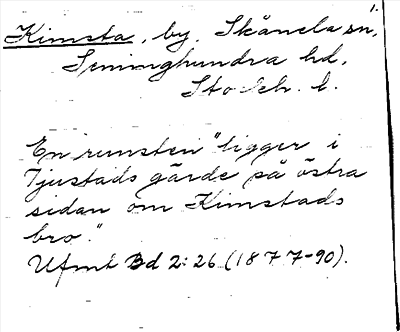 1.
Kimsta, by, Skånela sn,
Seminghundra hd,
Stockh. l.
En runsten "ligger i
Tjustads gärde på östra
sidan om Kimstads
bro."
Ufmt Bd 2:26 (1877-90).